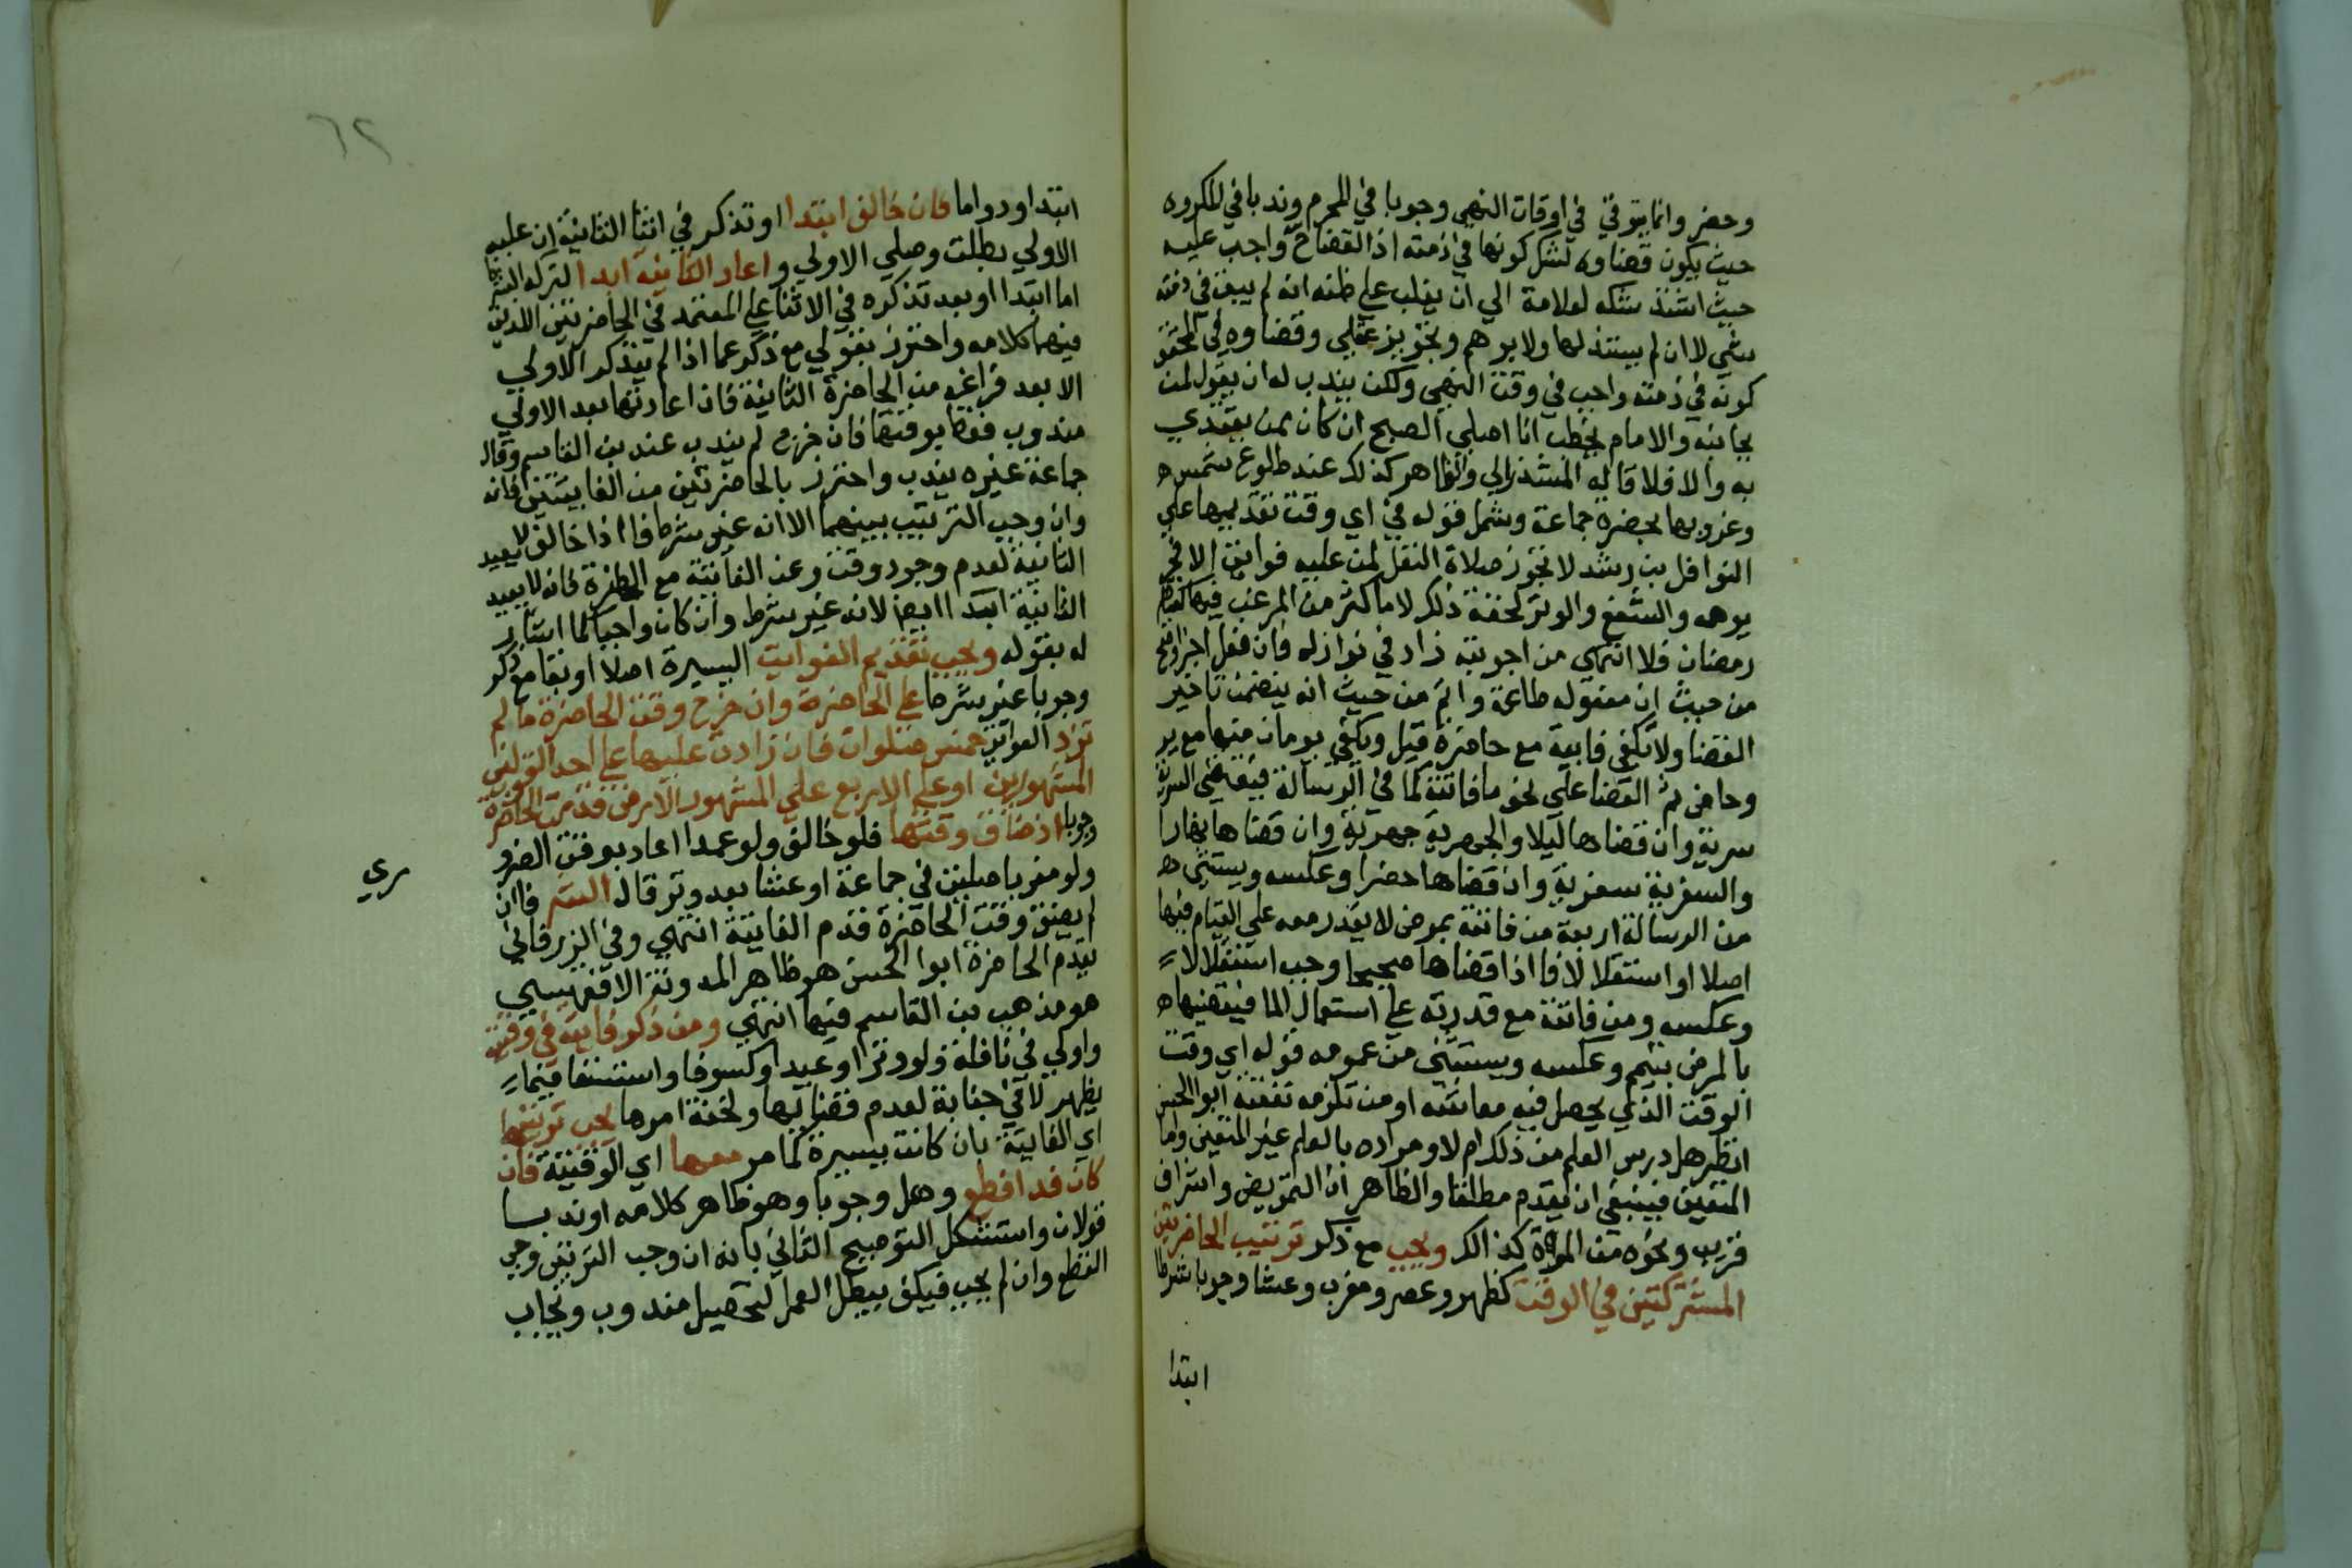 وحضر وانما يتوقي في اوقات النهي وجوبا في المحرم وندبا في المكروه
حيث يكون قضاوه لشك كونها في ذمته اذ القضاح واجب عليه
حيث استند شكه لعلامة الي ان يغلب علي ظنه انه لم يبق في ذمته
شي لا ان لم يستند لها ولا بوهم وتجويز عقلي وقضاوه في المحقق
كونه في ذمته واجب في وقت النهي ولكن يندب له ان يقول لمن
بجانبه والامام يخطب انا اصلي الصبح ان كان ممن يقتدي
به والا فلا قاله والظاهر كذلك عند طلوع شمس
وغروبها بحضرة جماعة وشمل قوله في اي وقت تقديمها علي
النوافل بن رشد لا تجوز صلاة النفل لمن عليه فوايت الا فجر
يومه والشفع والوتر لخفة ذلك لا ما كثر من المرغب فيها كقيام
رمضان فلا انتهي من اجوبته زاد في نوازله فان فعل اجر واثم
من حيث ان مفعوله طاعة واثم من حيث انه يتضمن تاخير
القضا ولا تكفي فايتة مع حاضرة قيل ويكفي يومان منها مع يوم
وحاضر ثم القضا علي نحو ما فاتته كما في الرسالة فيقضي السرية
سرية وان قضاها ليلا والجهرية جهرية وان قضاها نهارا
والسفرية سفرية وان قضاها حضرا وعكسه ويستثني
من الرسالة اربعة من فاتته بمرض لا يقدر معه علي القيام فيها
اصلا او استقلالا فاذا قضاها صحيحا وجب استقلالا
وعكسه ومن فاتته مع قدرته علي استعمال الما فيقضيها
بالمرض بتيمم وعكسه ويستثني من عموم قوله اي وقت
الوقت الذي يحصل فيه معاشه او من تلزمه نفقته ابوا الحسن
انظر هل درس العلم من ذلك ام لا ومراده بالعلم غير المتعين واما
المتعين فينبغي ان يقدم مطلقا والظاهر ان التمريض واشراف
قريب ونحوه من كذالك ويجب مع ذكر ترتيب الحاضرتين
المشتركتين في الوقت كظهر وعصر ومغرب وعشا وجوبا شرطا
ابتدا
٦٢
ابتدا ودواما فان خالف ابتدا او تذكر في اثنا الثانية ان عليه
الاولي بطلت وصلي الاولي واعاد الثانية ابدا لتركه الشرط
اما ابتدا او بعد تذكره في الاثنا علي المعتمد في الحاضرتين اللذين
فيهما كلامه واحترز بقولي مع ذكر عما اذا لم يتذكر الاولي
الا بعد فراغه من الحاضرة الثانية فان اعادتها بعد الاولي
مندوب فقط بوقتها فان خرج لم يندب عند بن القاسم وقال
جماعة غيره يندب واحترز بالحاضرتين من الفايتتين فانه
وان وجب الترتيب بينهما الا انه غير شرط فاذا خالف لا يعيد
الثانية لعدم وجود وقت وعن الفايتة مع الحاضرة فانه لا يعيد
الثانية ابدا ايضا لانه غير شرط وان كان واجبا كما اشار
له بقوله ويجب تقديم الفوايت اليسيرة اصلا او بقا مع ذكر
وجوبا غير شرط علي الحاضرة وان خرج وقت الحاضرة ما لم
تزد الفوايت خمس صلوات فان زادت عليها علي احد القولين
المشهورين او علي الاربع علي المشهور الارجح قدمت الحاضرة
وجوبا ان ضاق وقتها فلو خالف ولو عمدا اعاد بوقت الضرو
ري
ولو مغربا صليت في جماعة او عشا بعد وتر قاله فان
لم يضق وقت الحاضرة قدم الفايتة انتهي وفي الزرقاني
يقدم الحاضرة ابوا الحسن هو ظاهر المدونة الاقفهسي
هو مذهب بن القاسم فيها انتهي ومن ذكر فايتة في وقتية
واولي في نافلة ولو وترا او عيدا او كسوفا واستسقا فيما
يظهر لا في جنازة لعدم قضايها ولخفة امرها يجب ترتيبها
اي الفايتة بان كانت يسيرة كما مر معها اي الوقتية فان
كان فذا قطع وهل وجوبا وهو ظاهر كلامه او ندبا
قولان واستشكل التوضيح الثاني بانه ان وجب الترتيب وجب
القطع وان لم يجب فكيف يبطل العمل لتحصيل مندوب ويجاب